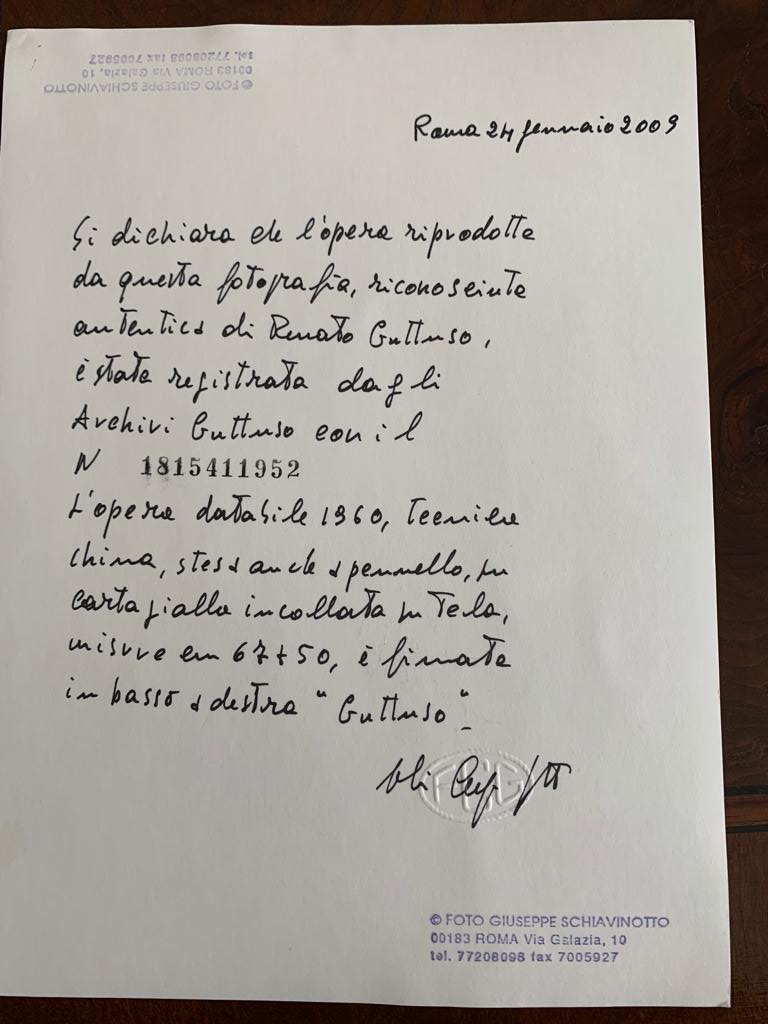 © FOTO GIUSEPPE SCHIAVINOTTO
00183 ROMA Via Galazia, 10
tel. 77208098 fax 7005927
Roma 24 gennaio 2009
Si dichiara che l'opera riprodotta
da questa fotografia, riconosciuta
autentica di Renato Guttuso,
è stata registrata dagli
Archivi Guttuso con il
N 1815411952
L'opera databile 1960, tecnica
china, stesa anche a pennello, su
carta gialla incollata su tela,
misura cm 67+50, è firmata
in basso a destra "Guttuso".
FAG
© FOTO GIUSEPPE SCHIAVINOTTO
00183 ROMA Via Galazia, 10
tel. 77208098 fax 7005927